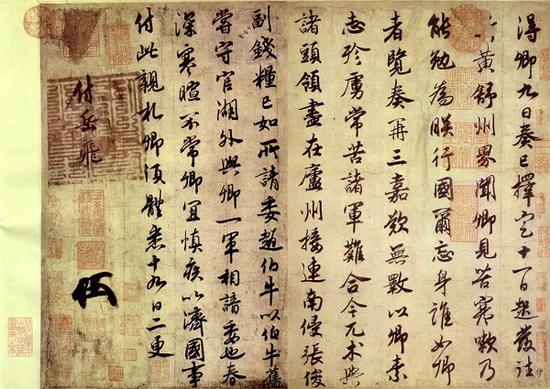 得卿九日奏已擇定十一日起發往
蘄黃舒州界聞卿見苦寒嗽乃
能勉為朕行國爾忘身誰如卿
者覽奏再三嘉歎無斁以卿素
志殄虜常苦諸軍難合今兀术與
諸頭領盡在廬州接連南侵張俊
副錢糧已如所請委趙伯牛以伯牛舊
嘗守官湖外與卿一軍相諳委也春
深寒暄不常卿宜慎疾以濟國事
付此親札卿須體悉十九日二更
付岳飛